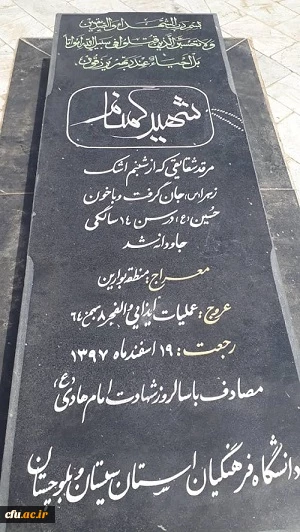 ولا تحسبن الذین قتلوا فی سبیل الله امواتا
بل احیاء عند ربهم یرزقون
شهید گمنام
مرقد شقایقی که از شبنم اشک
زهرا(س) جان گرفت و با خون
حسین(ع) در سن ۱۴ سالگی
جاودانه شد
معراج: منطقه بوارین
عروج: عملیات ایذایی والفجر ۸ بهمن ۶۴
رجعت: ۱۹ اسفند ماه ۱۳۹۷
مصادف با سالروز شهادت امام هادی(ع)
دانشگاه فرهنگیان استان سیستان و بلوچستان
cfu.ac.ir